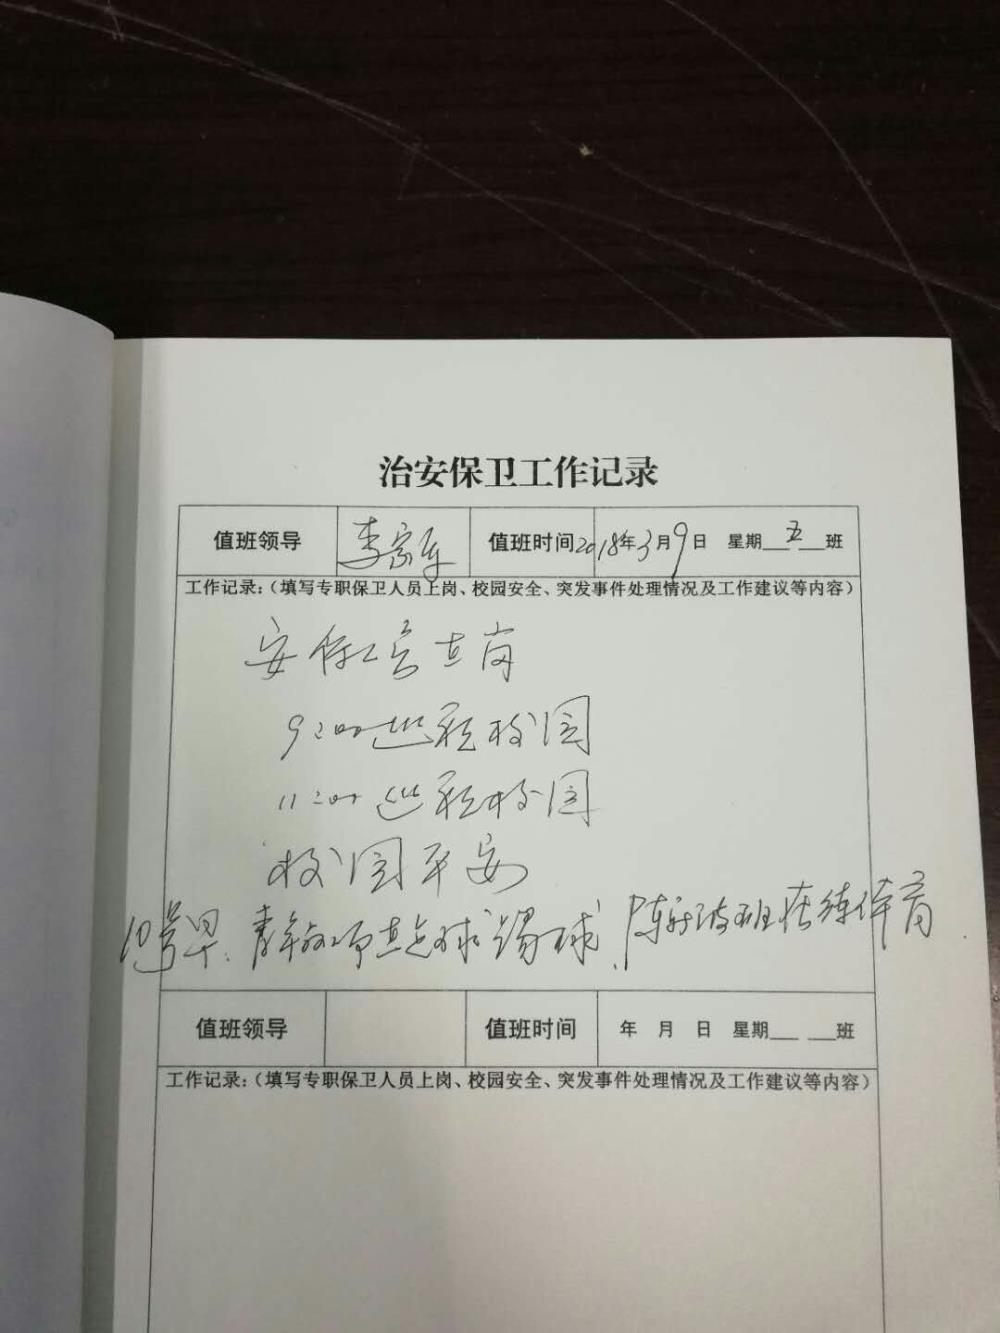 治安保卫工作记录
值班领导 李家军 值班时间 2018年3月9日 星期 五 班
工作记录:(填写专职保卫人员上岗、校园安全、突发事件处理情况及工作建议等内容)
安保人员在岗
9:00巡视校园
11:00巡视校园
校园平安
球踢球、陈 班在练体育
值班领导 值班时间 年 月 日 星期___ ___班
工作记录:(填写专职保卫人员上岗、校园安全、突发事件处理情况及工作建议等内容)